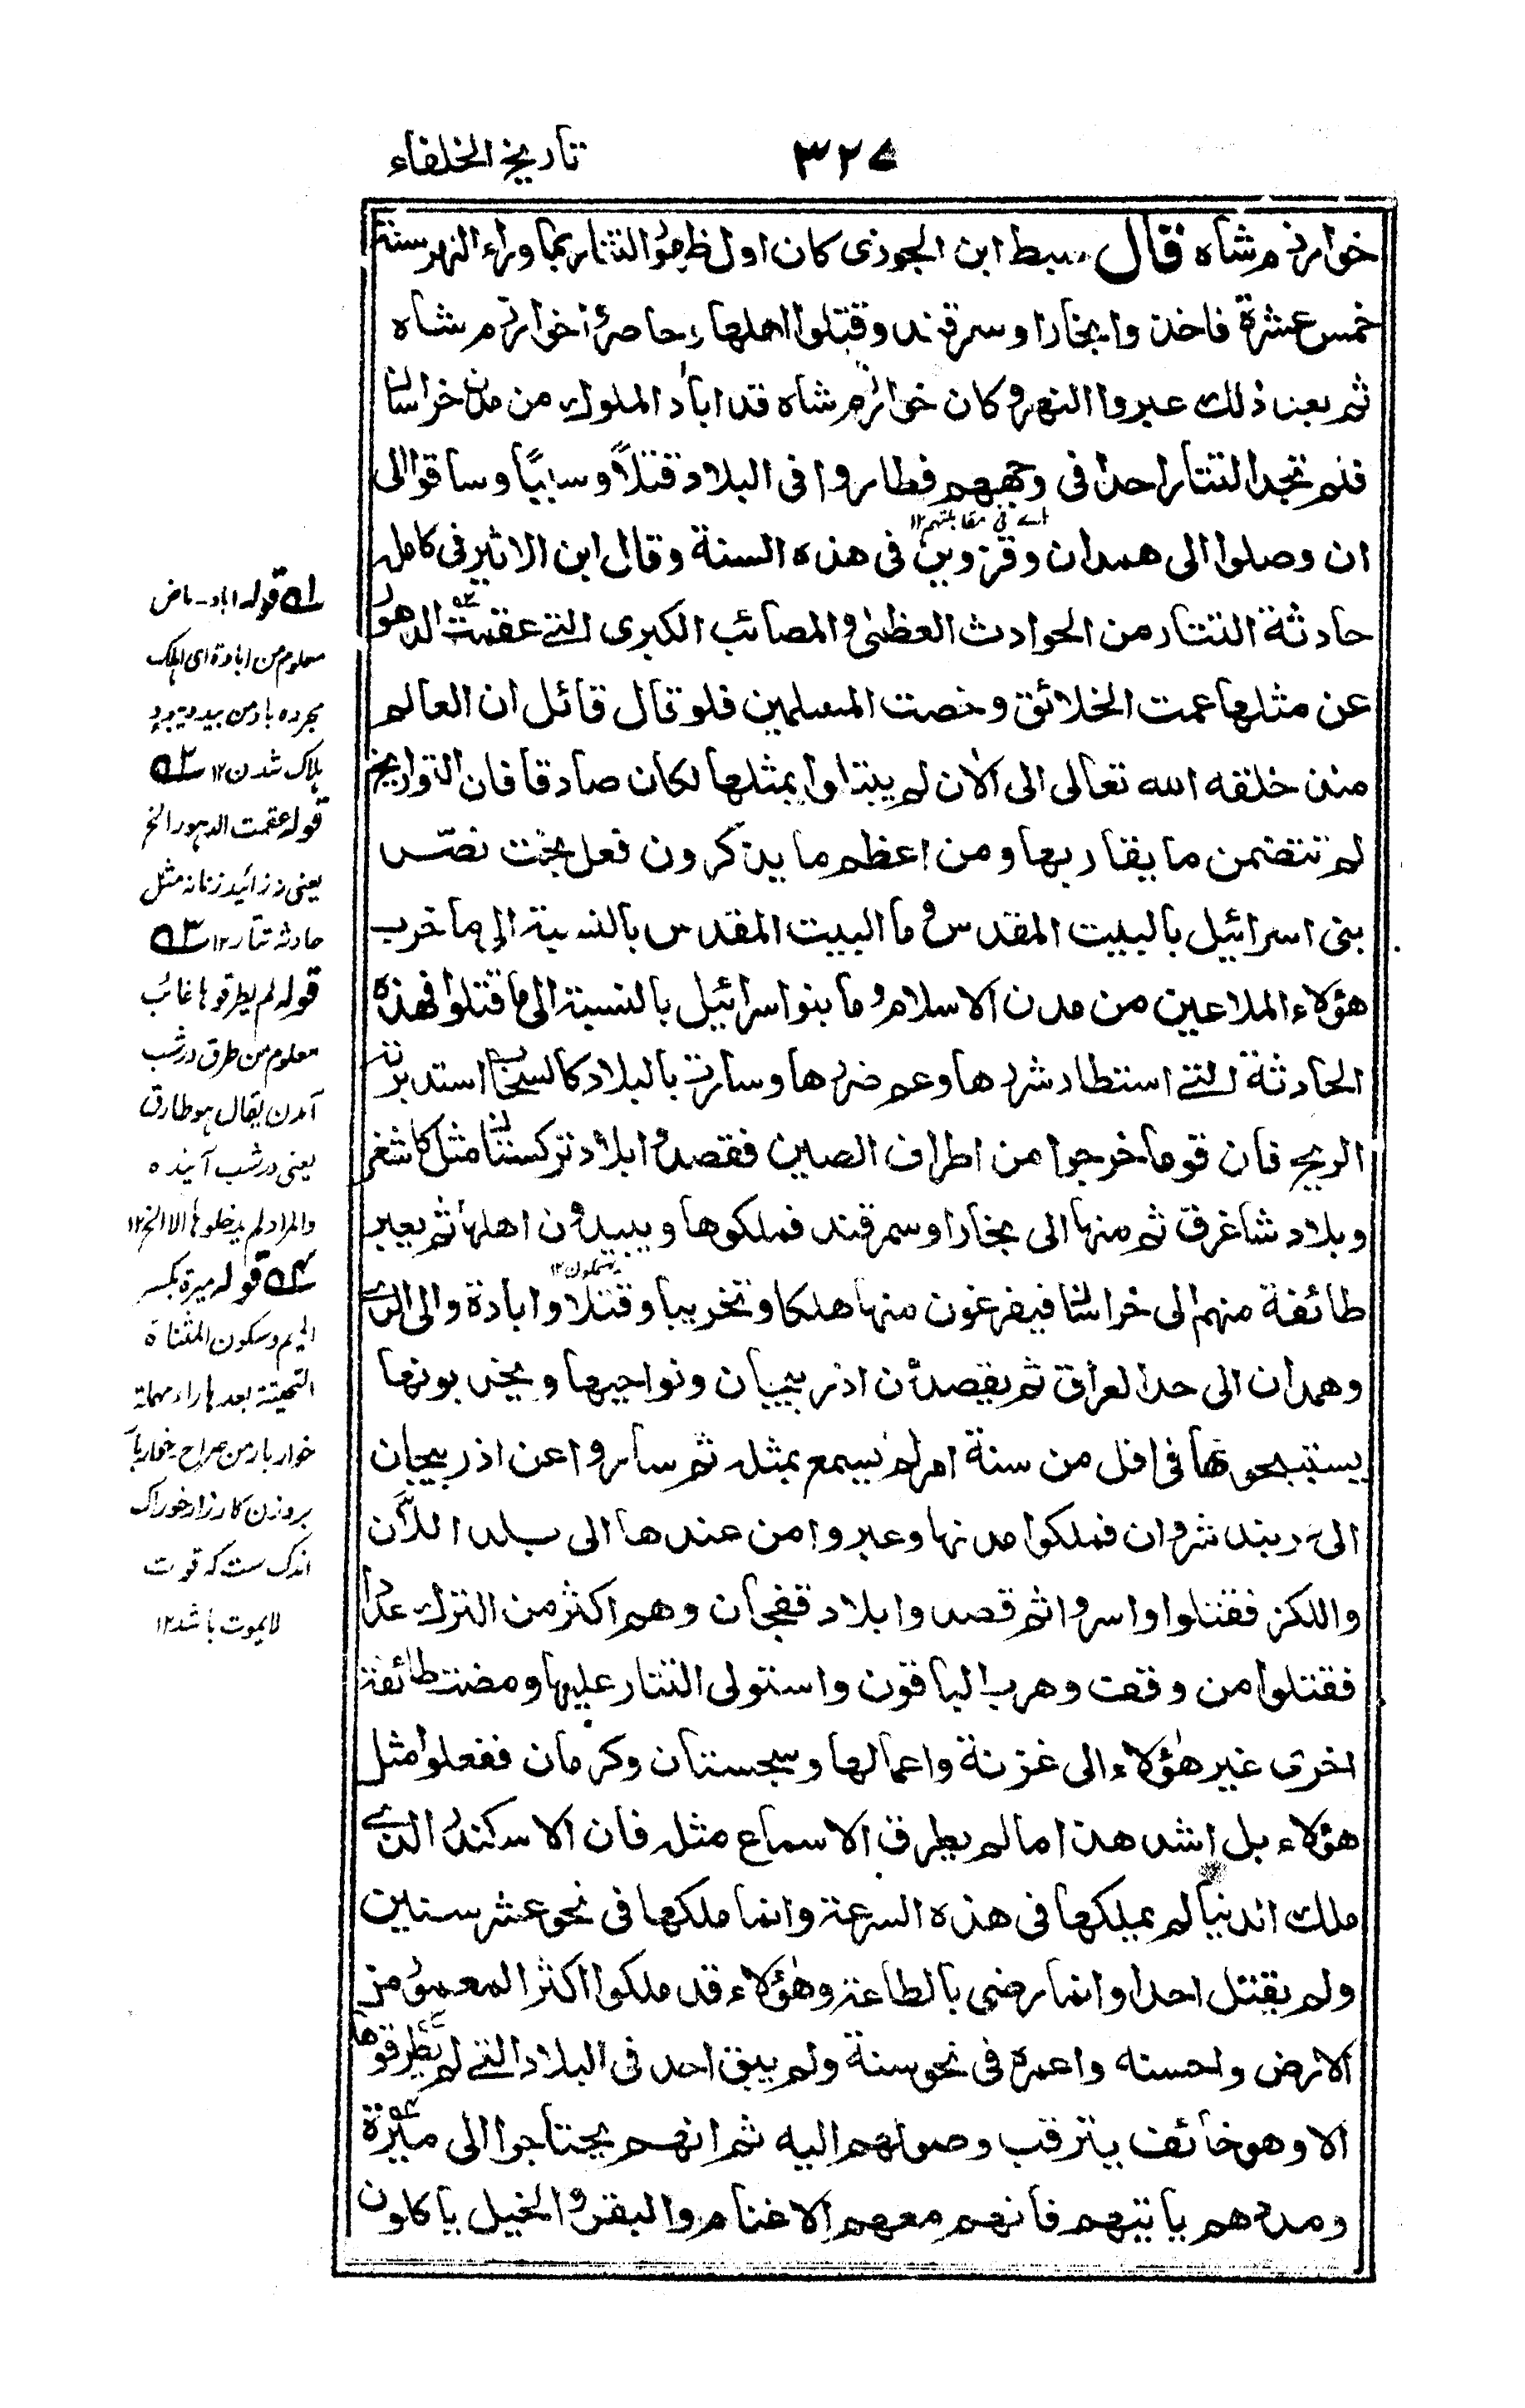 تاريخ الخلفاء
٣٢٧
خوارزم شاه قال سبط ابن الجوزى كان اول ظهور التتار بما وراء النهر سنة
خمس عشرة فاخذوا بخارا وسمرقند وقتلوا اهلها وحاصروا خوارزم شاه
ثم بعد ذلك عبروا النهر وكان خوارزم شاه قد اباد الملوك من مدن خراسان
فلم تجد التتار احدا فى وجههم فطاروا فى البلاد قتلاً وسبيًا وساقوا الى
اے فی مقابلتهم ١٢
ان وصلوا الى همدان وقزوين فى هذه السنة وقال ابن الاثير فى كامله
حادثة التتار من الحوادث العظمى والمصائب الكبرى التے عقمت الدهور
عن مثلها عمت الخلائق وخصت المسلمين فلو قال قائل ان العالم
منذ خلقه الله تعالى الى الان لم يبتلوا بمثلها لكان صادقا فان التواريخ
لم تتضمن ما يقاربها ومن اعظم ما يذكرون فعل بخت نصّر
بنى اسرائيل بالبيت المقدس وما البيت المقدس بالنسبة الى ما خرب
هؤلاء الملاعين من مدن الاسلام وما بنو اسرائيل بالنسبة الى ما قتلوا فهذه
الحادثة التے استطار شررها وعم ضررها وسارت بالبلاد كالسحاب استدبرته
الريح فان قوما خرجوا من اطراف الصين فقصدوا بلاد تركستان مثل كاشغر
وبلاد شاغرق ثم منها الى بخارا وسمرقند فملكوها ويبيدون اهلها ثم يعبر
يتملكون ١٢
طائفة منهم الى خراسان فيفرغون منها هلكا وتخريبا وقتلا وابادة والى الرے
وهمدان الى حد العراق ثم يقصدون اذربيجان ونواحيها ويخربونها
يستبيحونها فى اقل من سنة امر لم يسمع بمثله ثم ساروا عن اذربيجان
الى دربند شروان فملكوا مدنها وعبروا من عندها الى بلد اللان
واللكز فقتلوا واسروا ثم قصدوا بلاد قفجان وهم اكثر من الترك عددا
فقتلوا من وقف وهرب الباقون واستولى التتار عليها ومضت طائفة
اخرى غير هؤلاء الى غزنة واعمالها وسجستان وكرمان ففعلوا مثل
هؤلاء بل اشد هذا ما لم يطرق الاسماع مثله فان الاسكندر الذے
ملك الدنيا لم يملكها فى هذه السرعة وانما ملكها فى نحو عشر سنين
ولم يقتل احدا وانما رضى بالطاعة وهؤلاء قد ملكوا اكثر المعمور من
الارض واحسنه واعمره فى نحو سنة ولم يبق احد فى البلاد التے لم يطرقوها
الا وهو خائف يترقب وصولهم اليه ثم انهم يحتاجوا الى ميرة
ومددهم ياتيهم فانهم معهم الاغنام والبقر والخيل ياكلون
١ قوله اباد ـ ماض
معلوم من ابادة اى اهلك
مجرده باد من بيد
ہلاک شدن ١٢ ٢
قوله عقمت الدهور الخ
يعنى نزائید زنانہ مثل
حادثہ تتار ١٢ ٣
قوله لم يطرقوها غائب
معلوم من طرق در شب
آمدن يقال هو طارق
يعنى در شب آینده
والمراد لم يدخلوها الا الخ ١٢
٤ قوله ميرة بكسر
الميم وسكون المثناة
التحتية بعدها راء مهملة
خواربار من صراح خواربار
بروزن کارزار خوراک
اندک ست کہ قوت
لایموت باشد ١٢